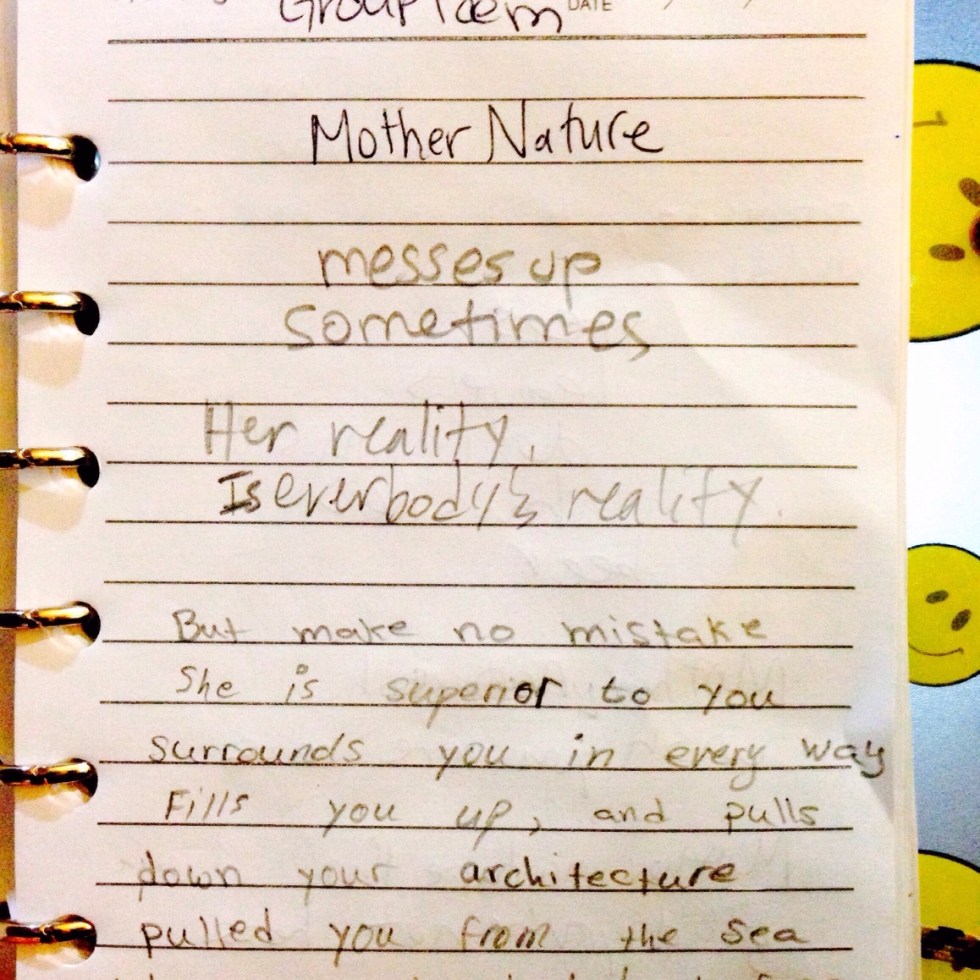 Group Poem DATE
Mother Nature
messes up
sometimes
Her reality,
Is everbody's reality.
But make no mistake
She is superior to you
surrounds you in every way
Fills you up, and pulls
down your architecture
pulled you from the sea